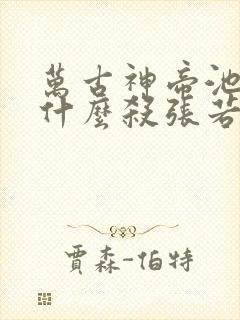 萬古神帝池
什麼殺張若
賈森-伯特